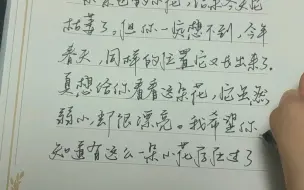 枯萎了，但你一定想不到，今年
春天，同样的位置它又长出来了。
真想给你看看这朵花，它虽然
弱小，却很漂亮。我希望你
知道有这么一朵小花存在过了